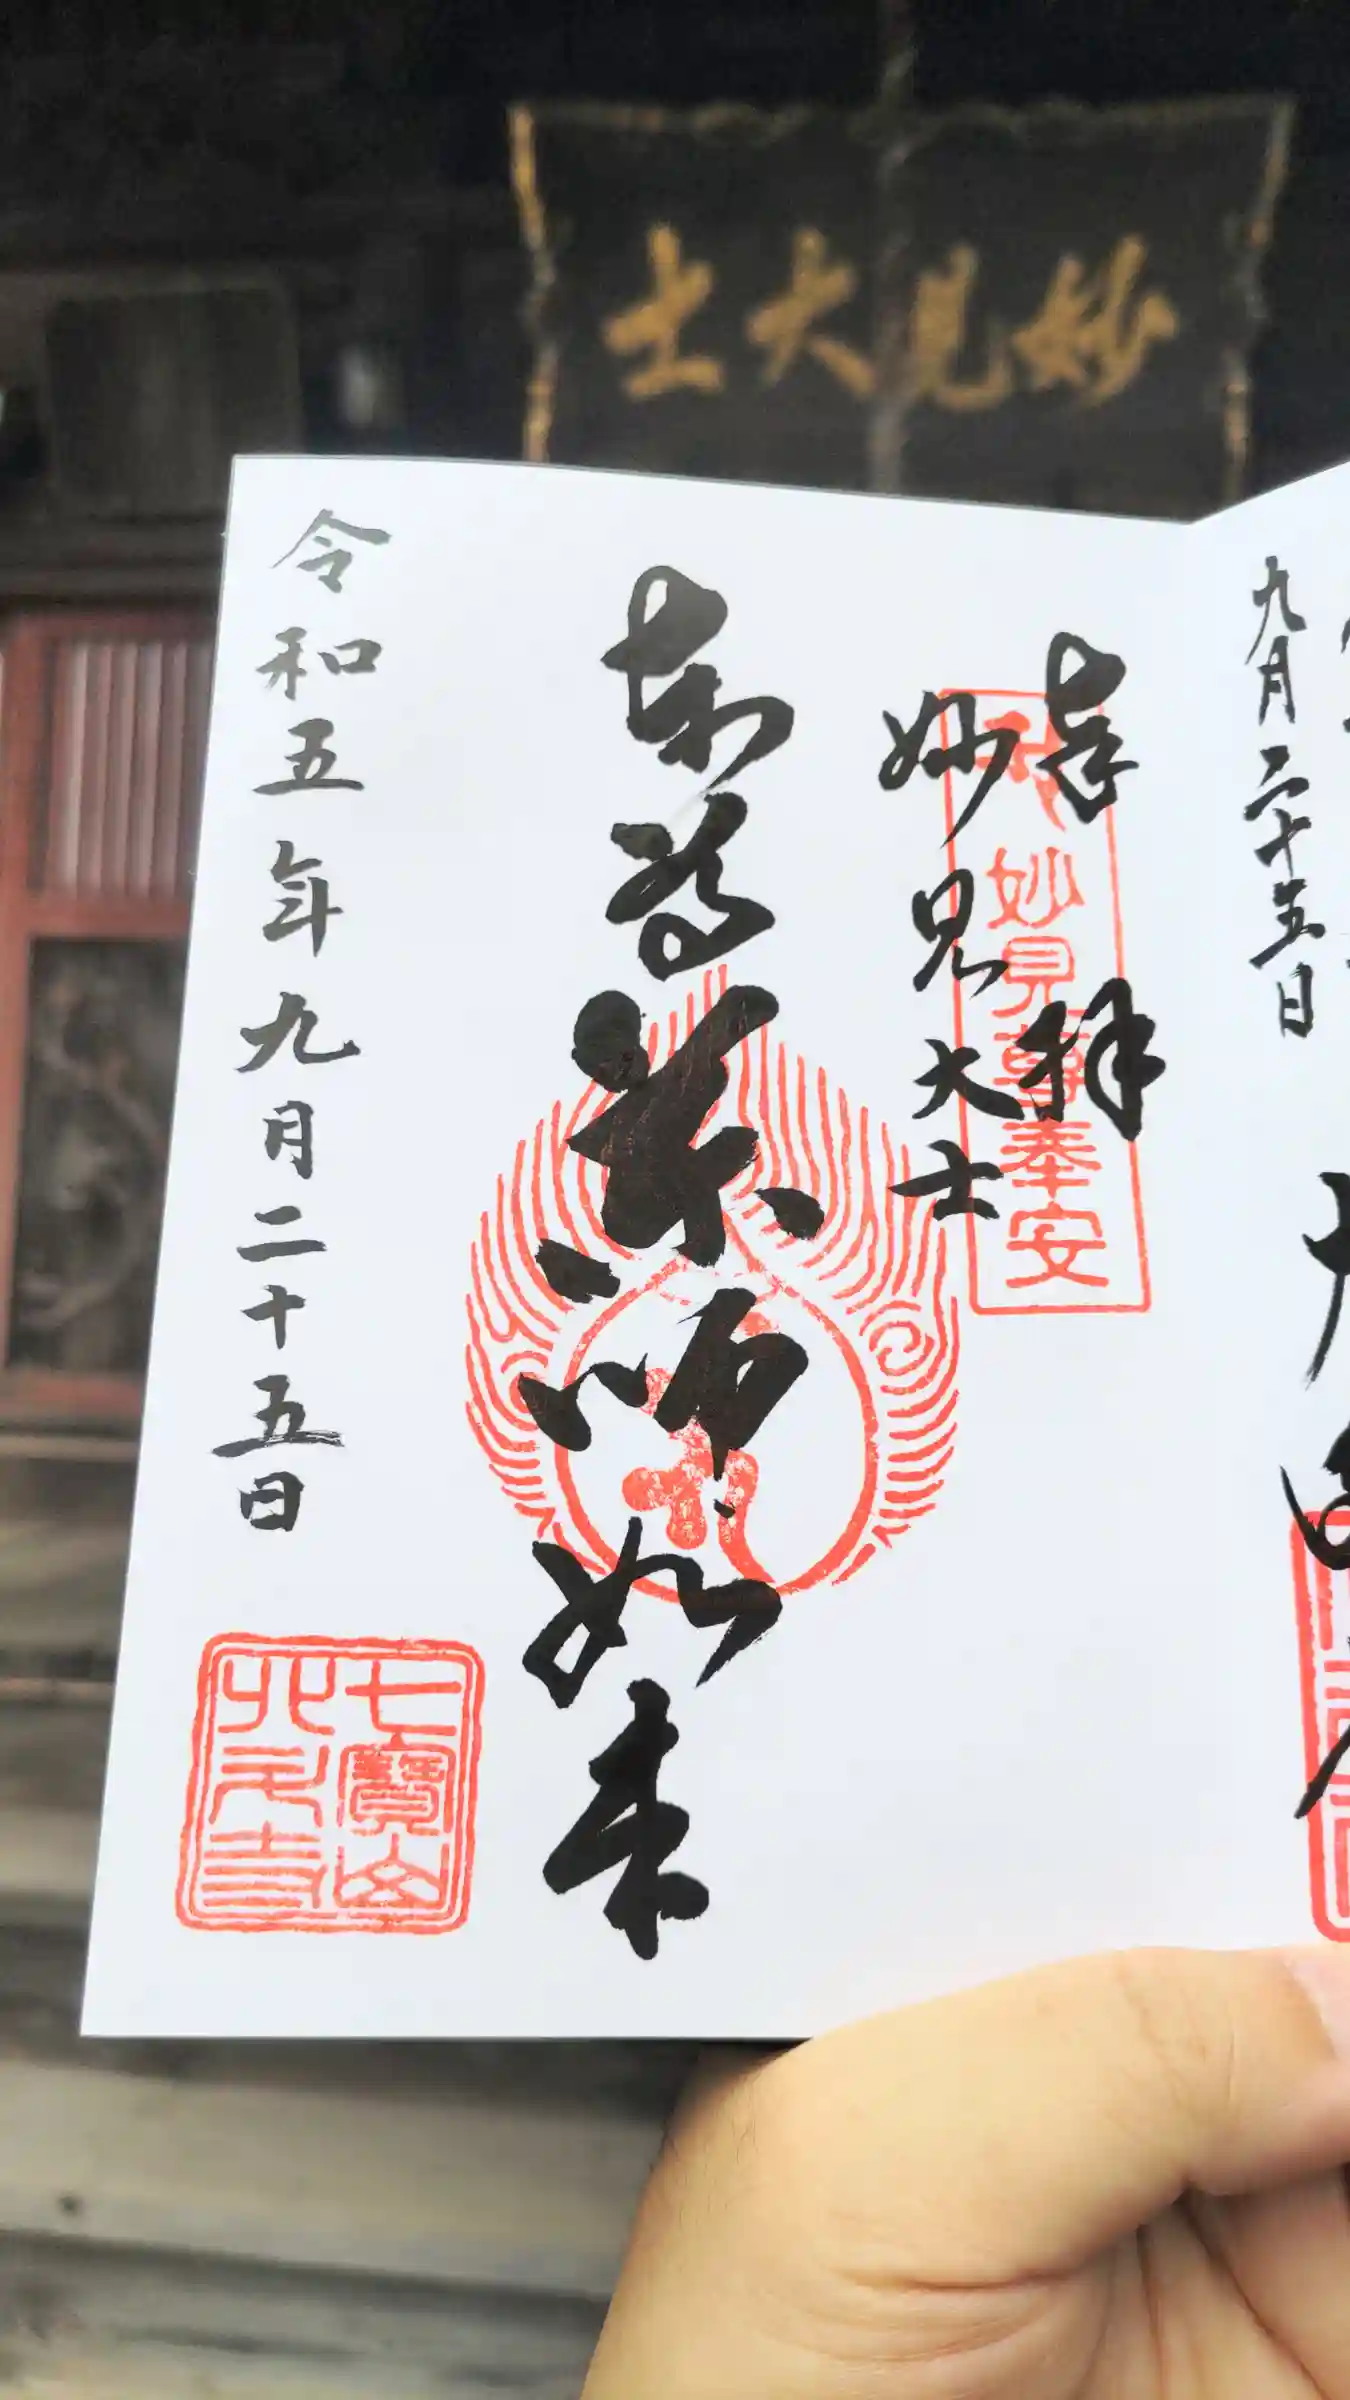 妙見大士
九月二十五日
奉拝
妙見尊奉安
妙見大士
本尊薬師如来
令和五年九月二十五日
七寳山
六元寺